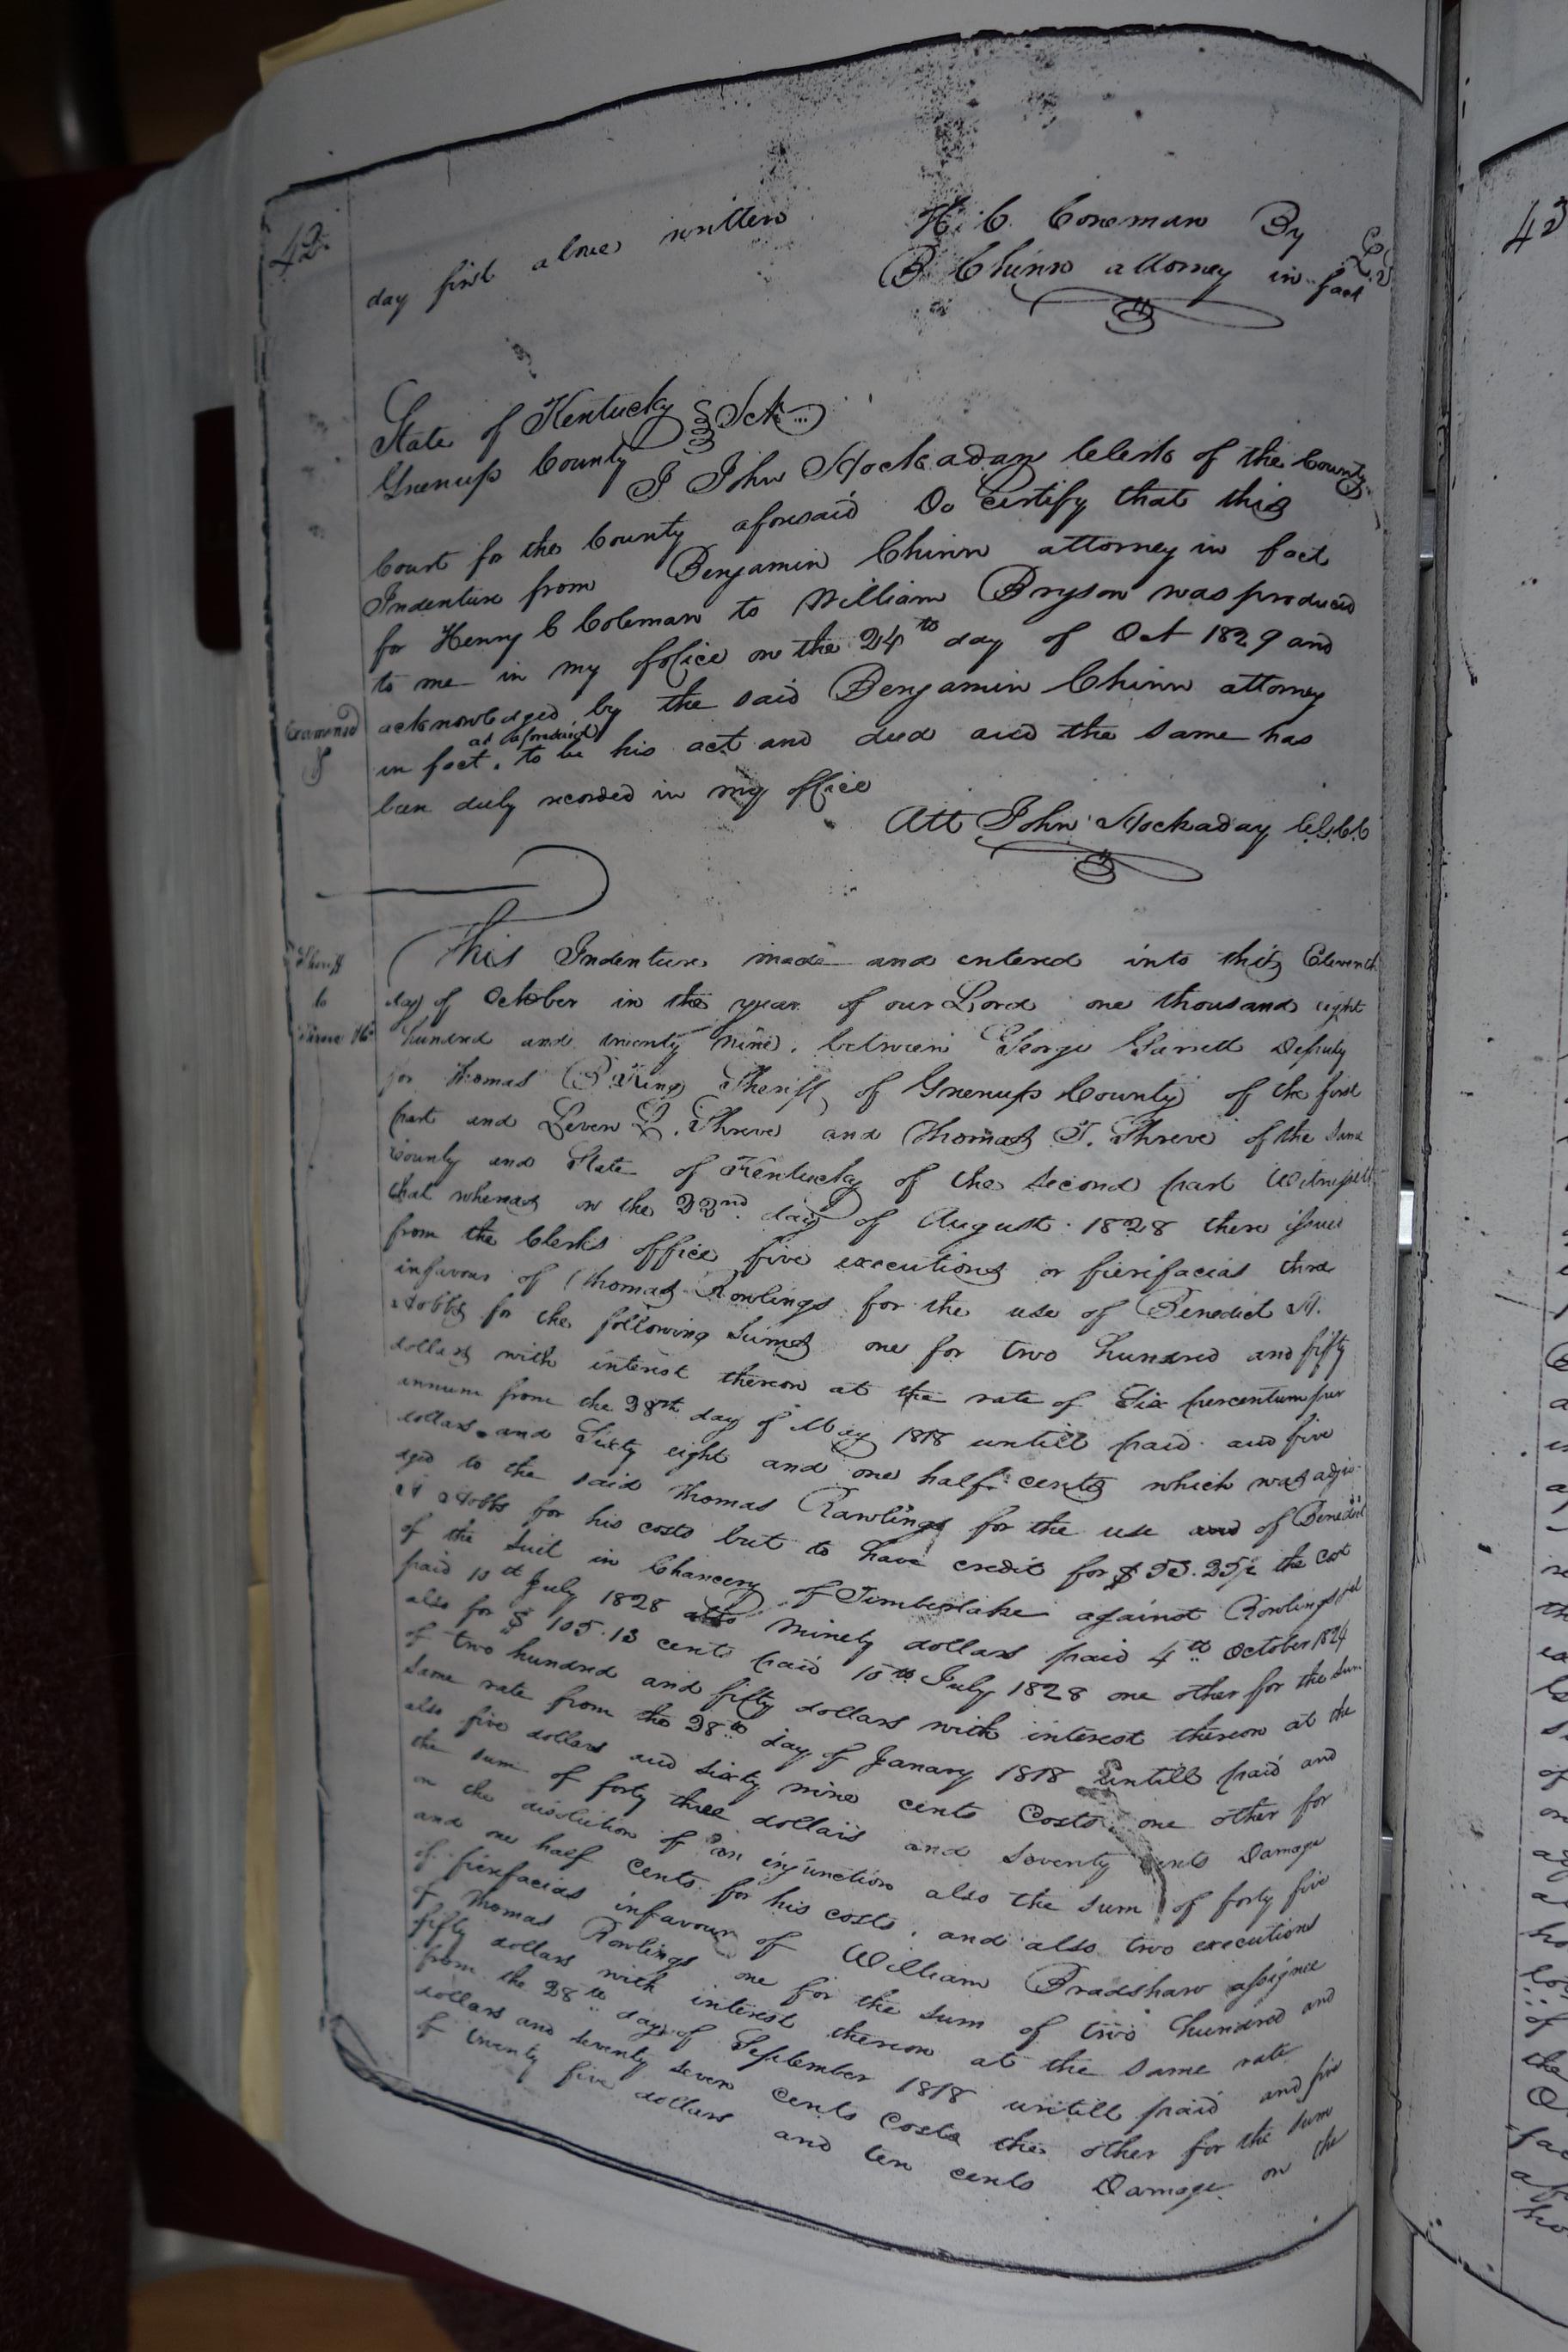 42
day first above written
H. C. Coleman By
B Chinn attorney in fact
State of Kentucky Sct
Greenup County
I John Hockaday Clerk of the County
Court for the County aforesaid Do Certify that this
Indenture from Benjamin Chinn attorney in fact
for Henry C Coleman to William Bryson was produced
to me in my office on the 24th day of Oct 1829 and
acknowledged by the said Benjamin Chinn attorney
as aforesaid
in fact, to be his act and deed and the same has
been duly recorded in my office
Examined
Att John Hockaday C.G.C.C
Sheriff
to
This Indenture made and entered into this Eleventh
day of October in the year of our Lord one thousand eight
hundred and twenty nine, between George Garrett Deputy
for Thomas B King Sheriff of Greenup County of the first
part and Leven L. Shreve and Thomas T. Shreve of the same
County and State of Kentucky of the second part Witnesseth
that whereas on the 22nd day of August 1828 there issued
from the Clerks office five executions or fierifacias three
infavour of Thomas Rowlings for the use of Benedict H.
Hobbs for the following Sums one for two hundred and fifty
dollars with interest thereon at the rate of Six percentum per
annum from the 28th day of May 1818 untill paid and five
dollars and Sixty eight and one half cents which was adju
ged to the said Thomas Rawlings for the use and of Benedict
H Hobbs for his costs but to have credit for $ the cost
of the Suit in Chancery of Timberlake against Rowlings
paid 10th July 1828 also Ninety dollars paid 4th October 1824
also for $ 105.13 cents paid 15th July 1828 one other for the Sum
of two hundred and fifty dollars with interest thereon at the
same rate from the 28th day of Janary 1818 Untill paid and
also five dollars and sixty nine cents Costs one other for
the sum of forty three dollars and seventy cents Damage
on the disolution of an injunction also the sum of forty five
and one half cents for his costs, and also two executions
of fierifacias infavour of William Bradshaw assignee
of Thomas Rowlings one for the sum of two hundred and
fifty dollars with interest thereon at the same rate
from the 28th day of September 1818 untill paid and five
dollars and seventy seven cents Costs the other for the sum
of twenty five dollars and ten cents Damage on the
43